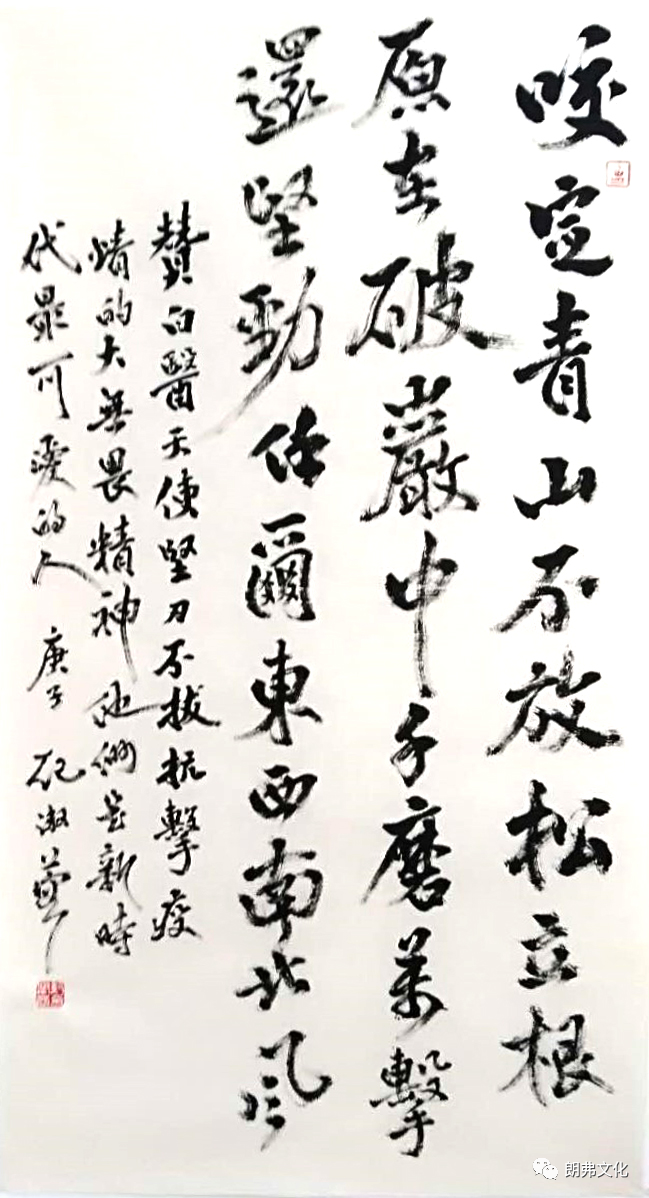 咬定青山不放松立根
原在破巖中千磨萬擊
還堅勁任爾東西南北風
贊白醫天使堅刃不拔抗擊疫
情的大無畏精神他們是新時
代最可愛的人 庚子 淑
朗弗文化